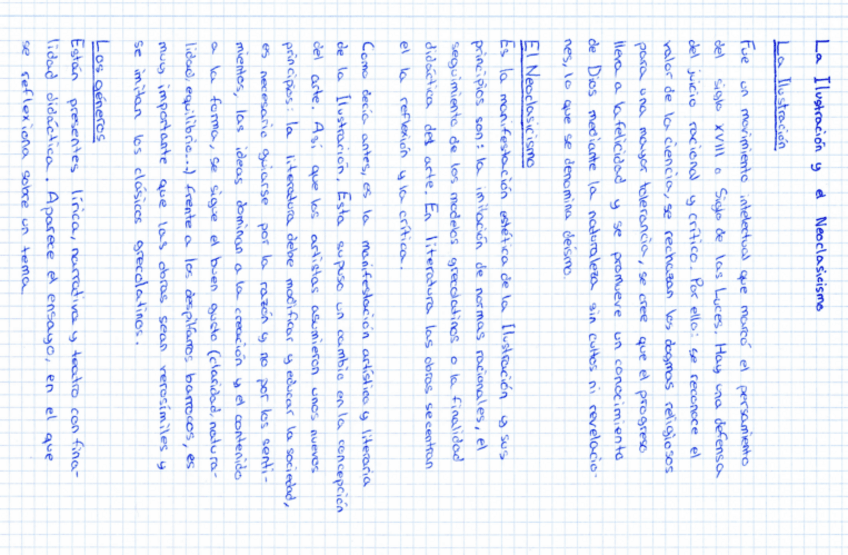 La Ilustración y el Neoclasicismo
La Ilustración
Fue un movimiento intelectual que marcó el pensamiento
del siglo XVIII o Siglo de las Luces. Hay una defensa
del juicio racional y crítico. Por ello: se reconoce el
valor de la ciencia, se rechazan los dogmas religiosos
para una mayor tolerancia, se cree que el progreso
lleva a la felicidad y se promueve un conocimiento
de Dios mediante la naturaleza sin cultos ni revelacio-
nes, lo que se denomina deísmo.
El Neoclasicismo
Es la manifestación estética de la Ilustración y sus
principios son: la imitación de normas racionales, el
seguimiento de los modelos grecolatinos o la finalidad
didáctica del arte. En literatura las obras se centran
el la reflexión y la crítica.
Como decía antes, es la manifestación artística y literaria
de la Ilustración. Esta supuso un cambio en la concepción
del arte. Así que los artistas asumieron unos nuevos
principios: la literatura debe modificar y educar la sociedad,
es necesario guiarse por la razón y no por los senti-
mientos, las ideas dominan a la creación y el contenido
a la forma, se sigue el buen gusto (claridad, natura-
lidad, equilibrio...) frente a los despilfarros barrocos, es
muy importante que las obras sean verosímiles y
se imitan los clásicos grecolatinos.
Los géneros
Están presentes lírica, narrativa y teatro con fina-
lidad didáctica. Aparece el ensayo, en el que
se reflexiona sobre un tema